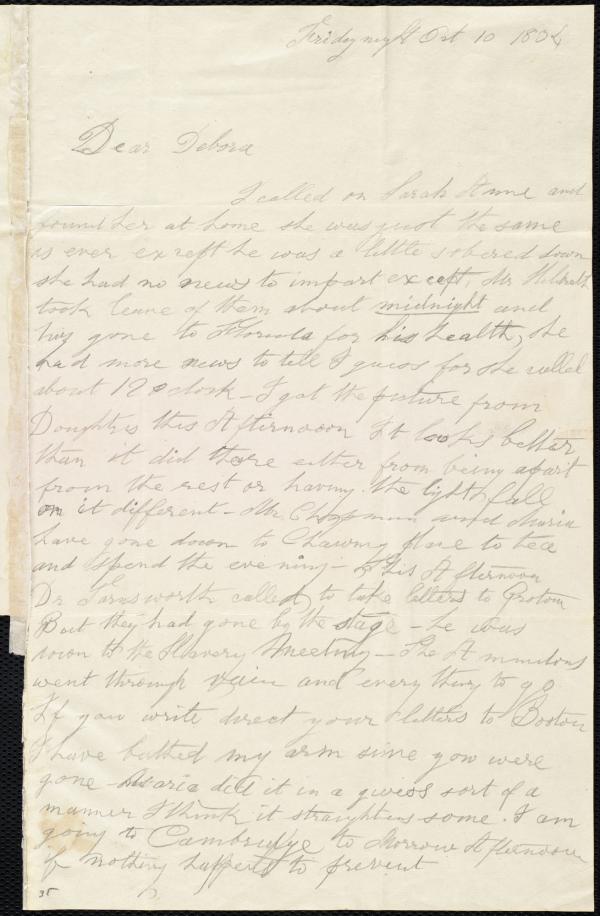 Friday night Oct 10 1834
Dear Debora
I called on Sarah Anne and
found her at home she was just the same
as ever except he was a little sobered down
she had no news to impart except, Mr
took leave of them about midnight and
gone to Florida for his health, she
had more news to tell I guess for she called
about 12 o clock - I got the picture from
Doughtys this Afternoon It looks better
than it did there either from being apart
from the rest or having the light fall
on it different - Mr Chapman and Maria
have gone down to Chauncy place to tea
and spend the evening - This Afternoon
Dr Farnsworth called to take letters to Groton
But they had gone by the stage - he was
down to the Slavery Meeting - The
went through and every thing to go
If you write direct your letters to Boston
I have bathed my arm sine you were
gone - Maria did it in a sort of a
manner I think it straightens some. I am
going to Cambridge to Morrow Afternoon
if nothing happens to prevent
35